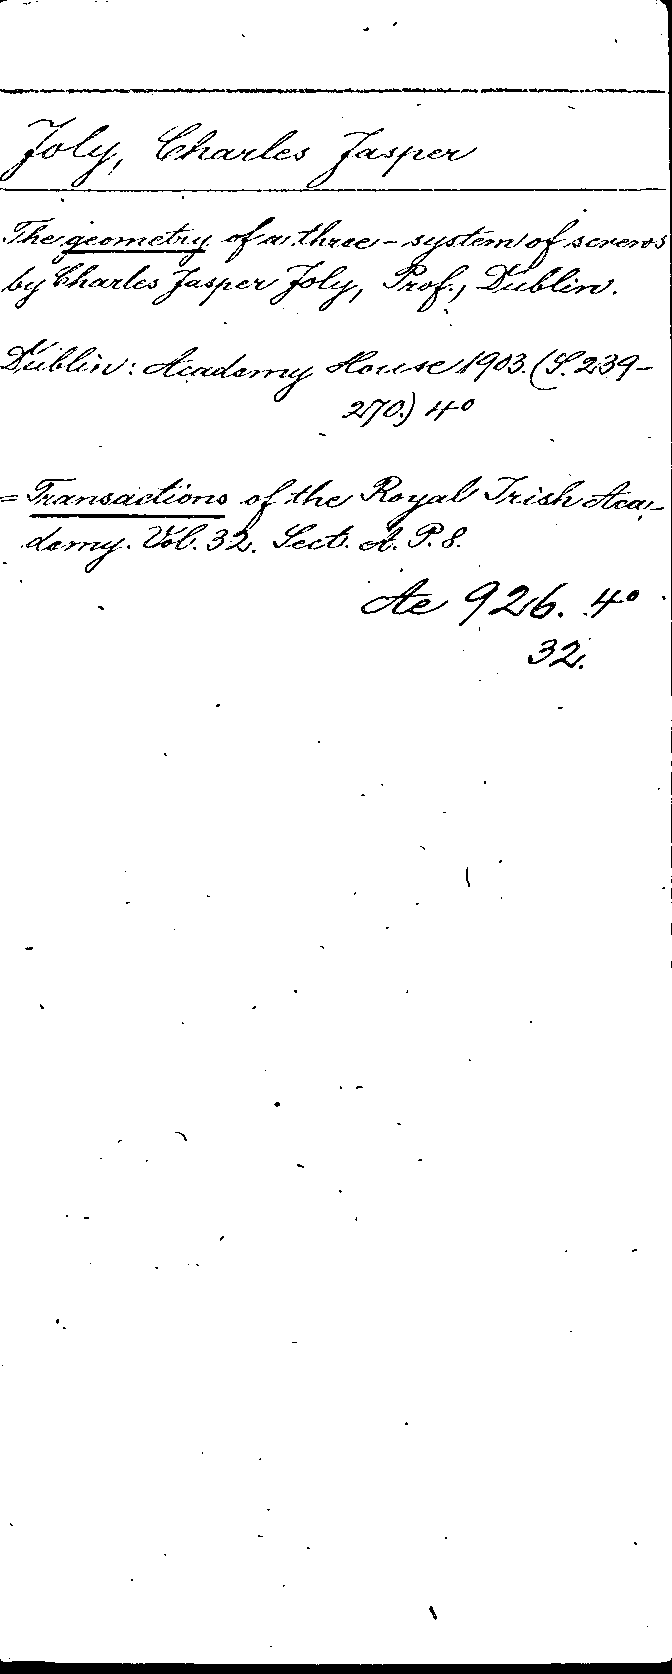 Joly, Charles Jasper
The geometry of a three-system of screws
by Charles Jasper Joly, Prof., Dublin.
Dublin: Academy House 1903. (S. 239-
270.) 4°
= Transactions of the Royal Irish Aca-
demy. Vol. 32. Sect. A. P. 8.
Ae 926. 4°
32.